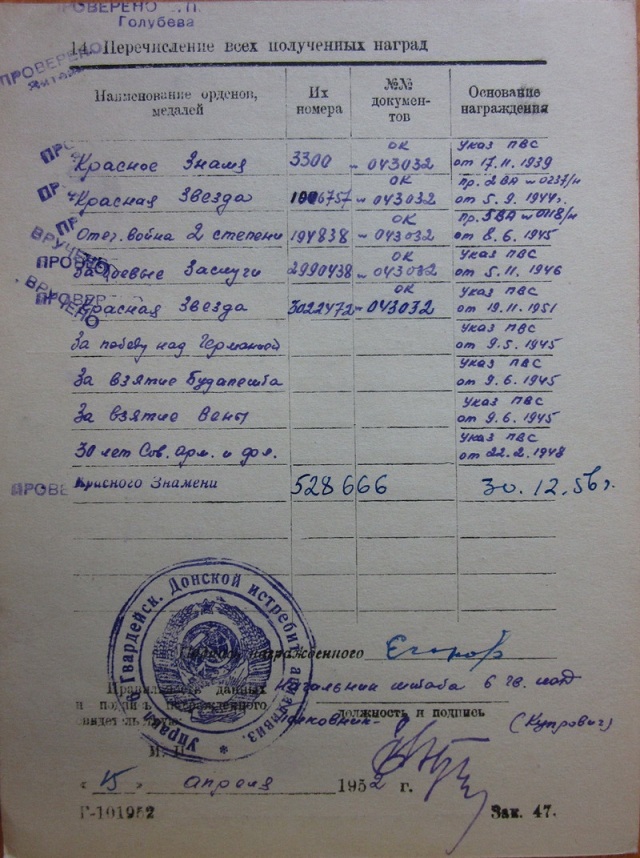 ПРОВЕРЕНО
Голубева
14. Перечисление всех полученных наград
ПРОВЕРЕНО
Наименование орденов, медалей
Их номера
№№ документов
Основание награждения
Красное Знамя 3300 - ОК 043032 Указ ПВС от 17.11.1939
Красная Звезда 1006757 - ОК 043032 Пр. 2ВА №0237/н от 5.9.1944г.
Отеч. война 2 степени 194838 - ОК 043032 Пр. 5ВА №0118/н от 8.6.1945
За боевые Заслуги 2990438 - ОК 043032 Указ ПВС от 5.11.1946
Красная Звезда 3022472 - ОК 043032 Указ ПВС от 19.11.1951
За победу над Германией Указ ПВС от 9.5.1945
За взятие Будапешта Указ ПВС от 9.6.1945
За взятие Вены Указ ПВС от 9.6.1945
30 лет Сов. арм. и фл. Указ ПВС от 22.2.1948
Красного Знамени 528666 30.12.56г.
ПРОВЕРЕНО
ВРУЧЕНО
ВРУЧЕНО
Гвардейск. Донской истребит. авиадивиз.
Подпись награжденного Егоров
Правильность данных Начальник штаба 6 гв. иад
и подпись награжденного должность и подпись
свидетельствую: полковник - (Купрович)
М. П.
« 15 » апреля 1952 г.
Г-101952 Зак. 47.